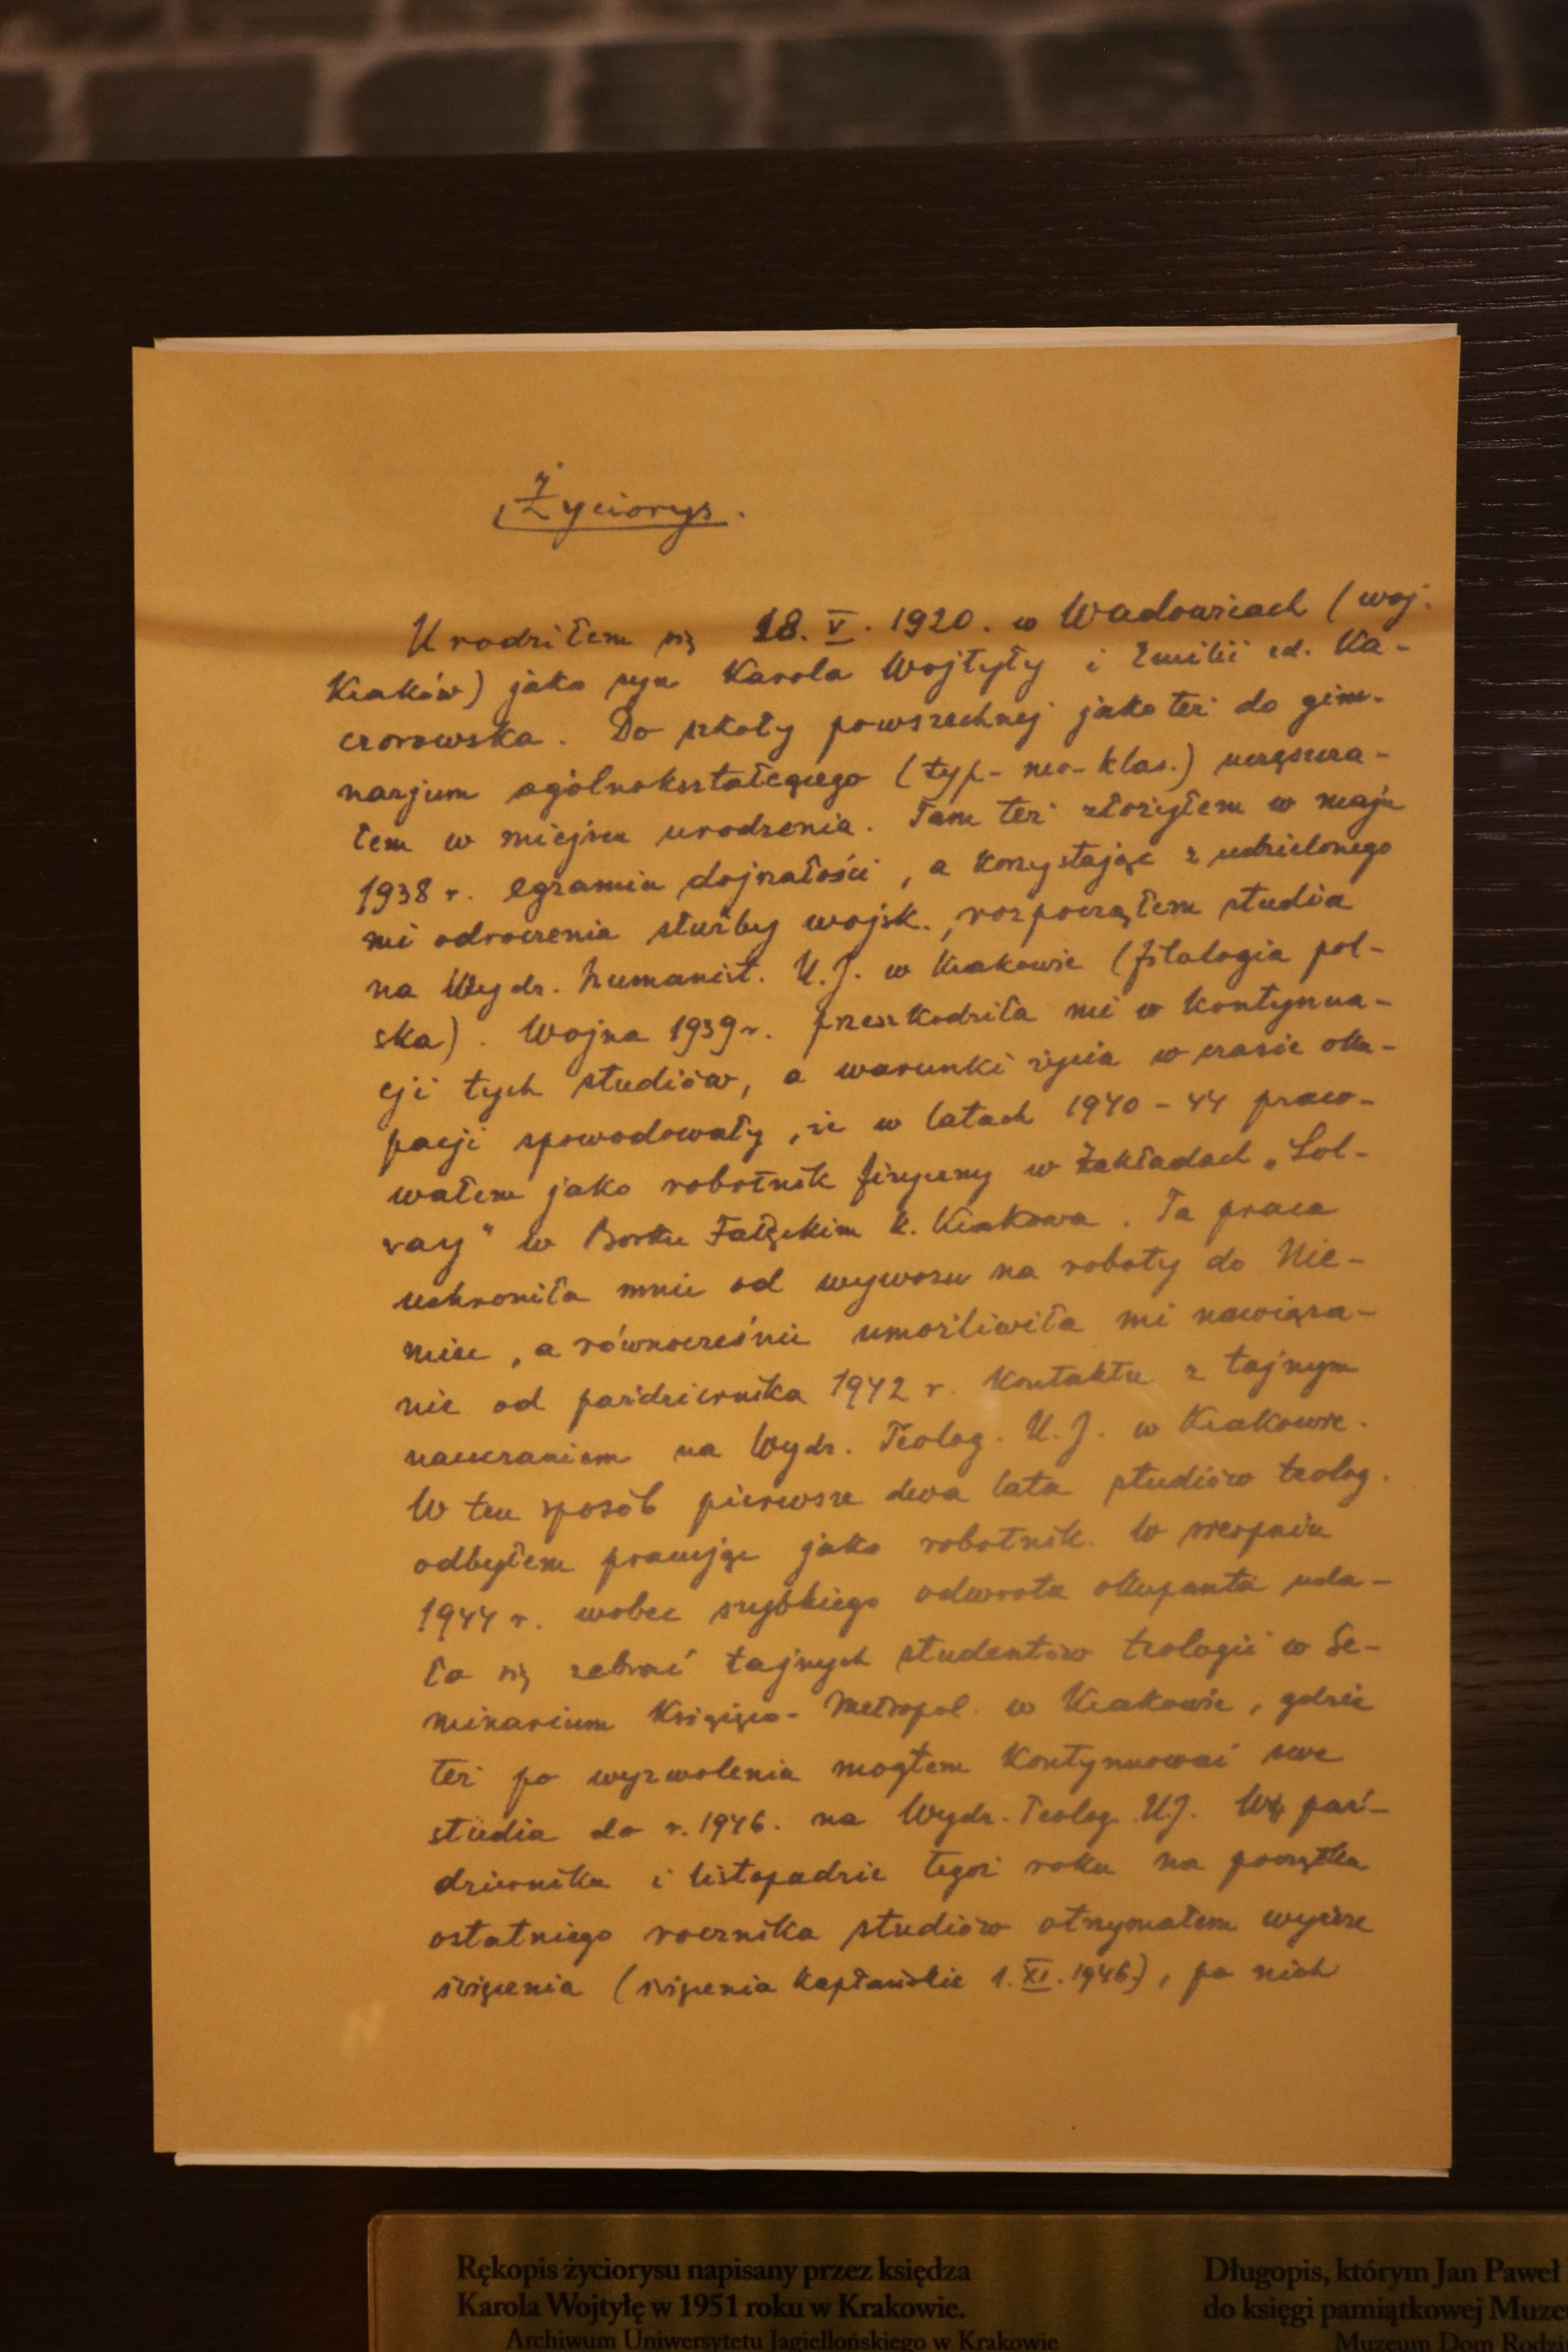 Życiorys.
Urodziłem się 18. V. 1920. w Wadowicach (woj.
Kraków) jako syn Karola Wojtyły i Emilii zd. Ka-
czorowska. Do szkoły powszechnej jako też do gim-
nazjum ogólnokształcącego (typ- neo- klas.) uczęszcza-
łem w miejscu urodzenia. Tam też złożyłem w maju
1938 r. egzamin dojrzałości, a korzystając z udzielonego
mi odroczenia służby wojsk., rozpocząłem studia
na Wydz. humanist. U.J. w Krakowie (filologia pol-
ska). Wojna 1939 r. przeszkodziła mi w kontynua-
cji tych studiów, a warunki życia w czasie oku-
pacji spowodowały, że w latach 1940 - 44 praco-
wałem jako robotnik fizyczny w Zakładach „Sol-
vay" w Borku Fałęckim k. Krakowa. Ta praca
uchroniła mnie od wywozu na roboty do Nie-
miec, a równocześnie umożliwiła mi nawiąza-
nie od października 1942 r. kontaktu z tajnym
nauczaniem na Wydz. Teolog. U.J. w Krakowie.
W ten sposób pierwsze dwa lata studiów teolog.
odbyłem pracując jako robotnik. W sierpniu
1944 r. wobec szybkiego odwrotu okupanta uda-
ło się zebrać tajnych studentów teologii w Se-
minarium Książęco- Metropol. w Krakowie, gdzie
też po wyzwoleniu mogłem kontynuować swe
studia do r. 1946. na Wydz. Teolog. U.J. W paź-
dzierniku i listopadzie tegoż roku na początku
ostatniego rocznika studiów otrzymałem wyższe
święcenia (święcenia kapłańskie 1. XI. 1946.), po nich
Rękopis życiorysu napisany przez księdza
Karola Wojtyłę w 1951 roku w Krakowie.
Archiwum Uniwersytetu Jagiellońskiego w Krakowie
Długopis, którym Jan Paweł
do księgi pamiątkowej Muze
Muzeum Dom Rodz